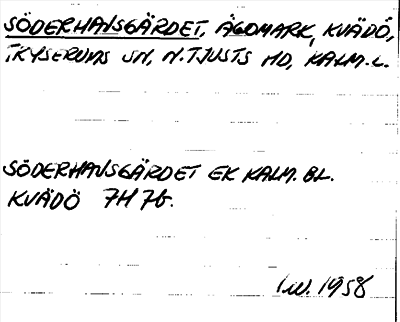 SÖDERHANSGÄRDET, ÄGOMARK, KVÄDÖ,
TRYSERUMS SN, N. TJUSTS HD, KALM. L.
SÖDERHANSGÄRDET EK KALM. BL.
KVÄDÖ 7H 7b.
I.W. 1958